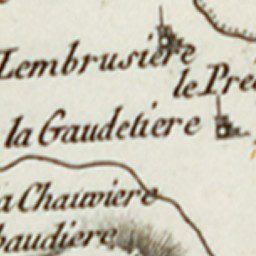 Lembrusière
le Pré
la Gaudetiere
a Chauviere
baudiere